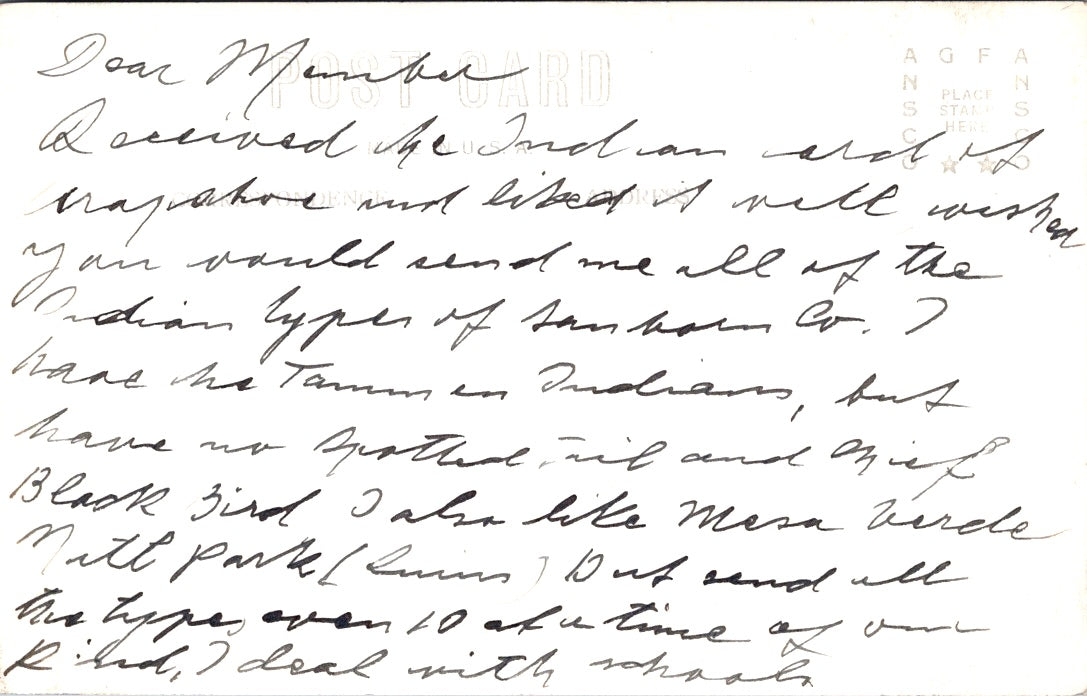 Dear Member
POST CARD
A G F A
ANSCO
ANSCO
PLACE
STAMP
HERE
Received the Indian card of
MADE IN U.S.A.
arapahoe and liked it well wished
CORRESPONDENCE
ADDRESS
you would send me all of the
Indian types of Sanborn Co. I
have the Tammen Indians, but
have no Spotted Tail and Chief
Black Bird I also like Mesa Verde
Natl Park (Ruins) But send all
the types, even 10 at a time of one
Kind, I deal with schools